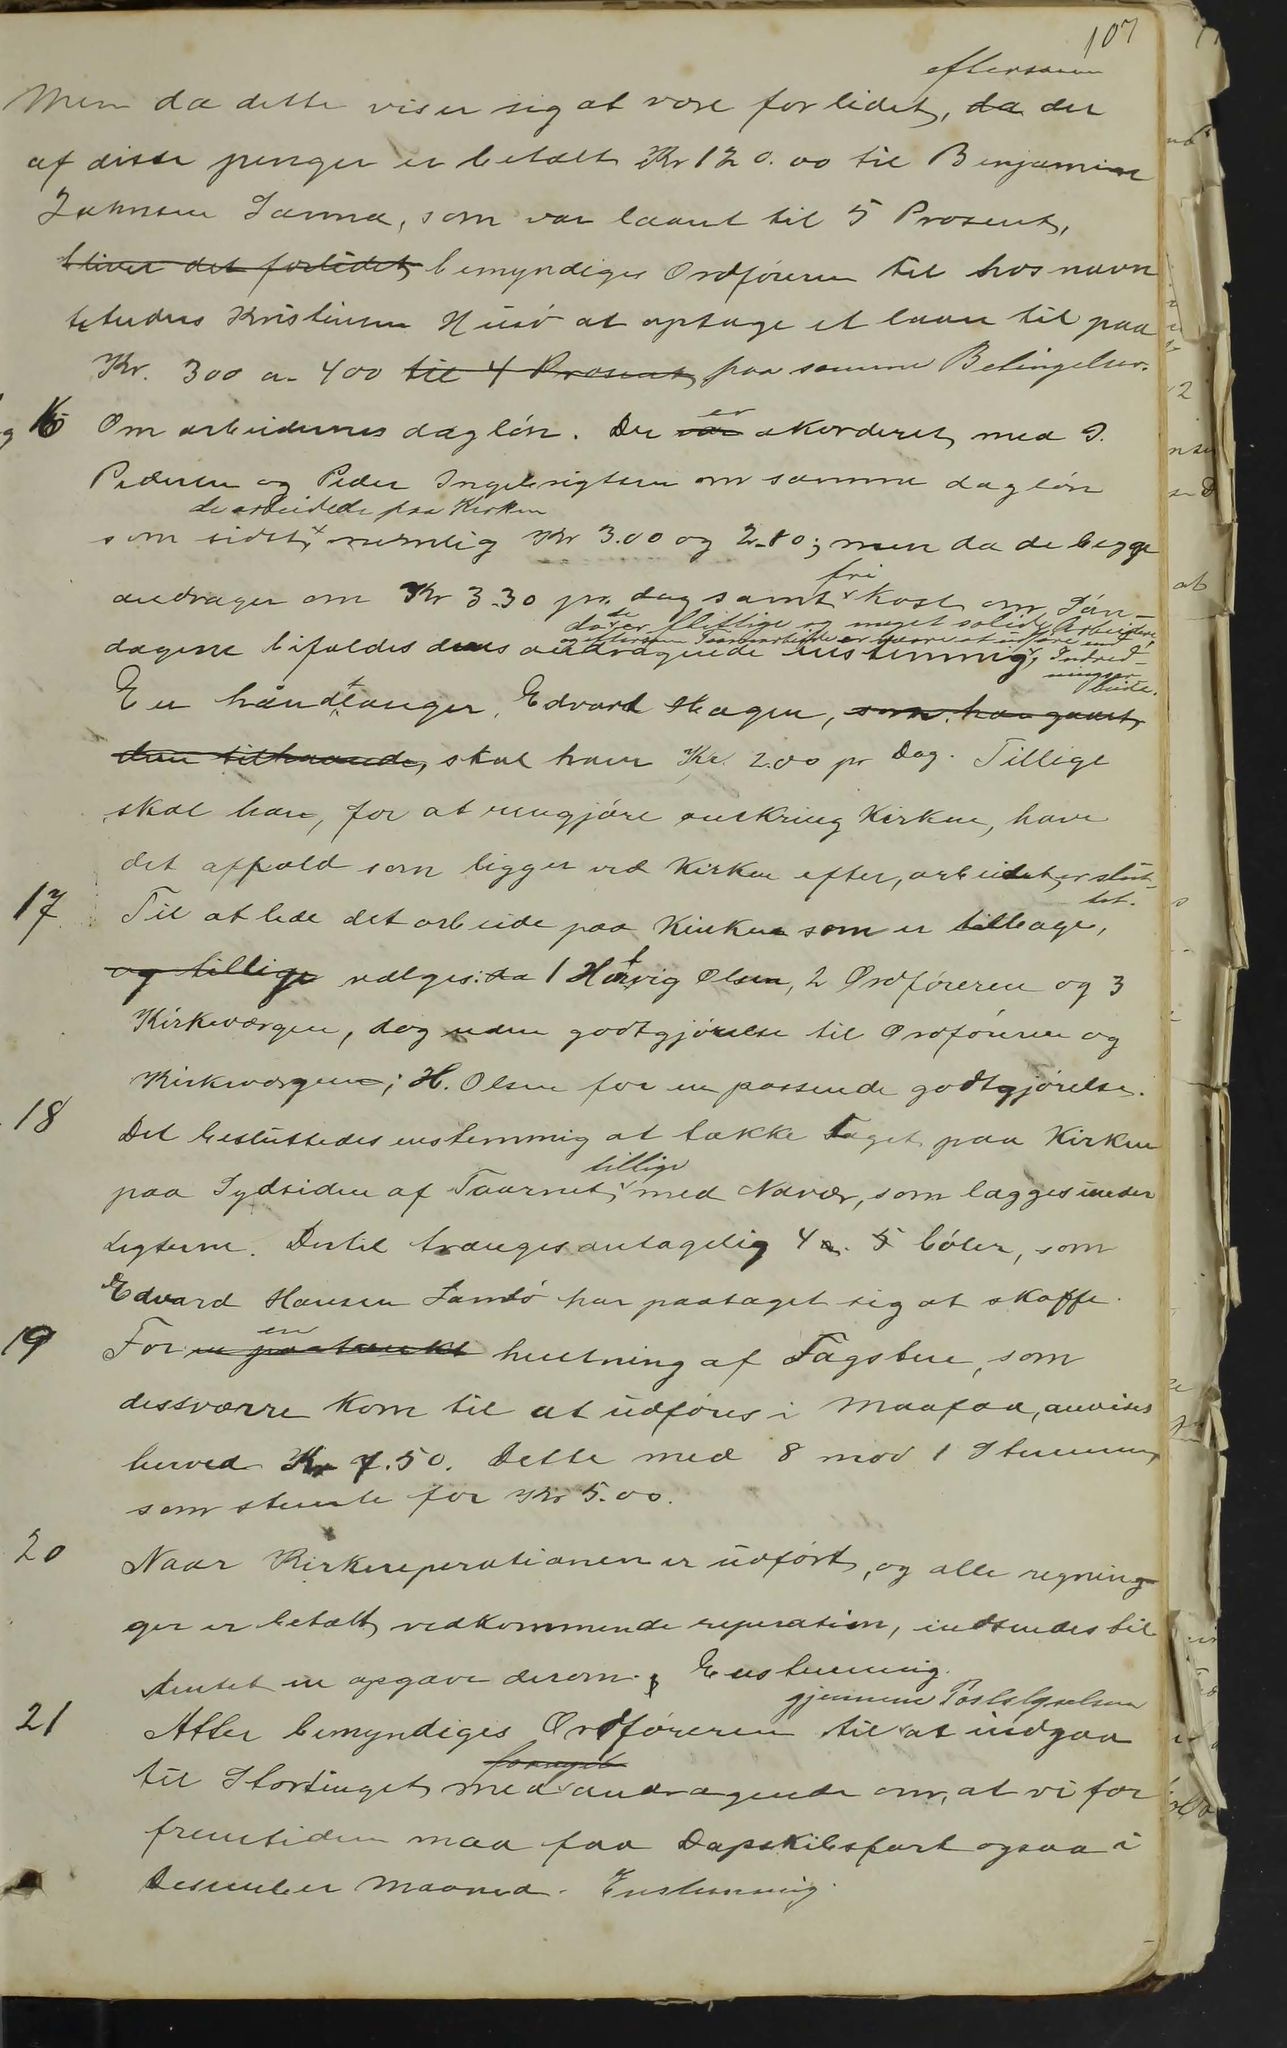 107
eftersom
Men da dette viser sig at være for lidet, da der
af disse penger er betalt Kr 120.00 til Benjamin
Johnsen Sanna, som var laant til 5 Prosent,
bliver det forlidet, bemyndiges Ordføreren til hos navn
Kristensen Husø at optage et laan til paa
Kr. 300 a 400 til 4 Prosent, paa samme Betingelser.
16 Om arbeidernes dagløn. Der er var akorderet med J.
Pedersen og Peder Ingebrigtsen om samme dagløn
de arbeidede paa Kirken
som sidst, nemlig Kr 3.00 og 2.80; men da de begge
fri
andrager om Kr 3.30 pr. dag samt kost om Søn-
da de er flittige og meget solide Arbeidere,
og eftersom Taarnarbeide er værre at udføre end
dagene bifaldes deres andragende enstemmig, Indred-
ningsar-
beide.
En håndtlanger, Edvard Skagen, som har gaaet
dem tilhaande, skal have Kr. 2.00 pr Dag. Tillige
skal han, for at rengjøre omkring Kirken, have
det affald som ligger ved Kirken efter, arbeidet er slut-
tet.
17 Til at lede det arbeide paa Kirken som er tilbage,
og tillige vælges: da 1 Hartvig Olsen, 2 Ordføreren og 3
Kirkeværgen, dog uden godtgjørelse til Ordføreren og
Kirkeværgen; H. Olsen for en passende godtgjørelse.
18 Det besluttedes enstemmig at tække Taget paa Kirken
tillige
paa Sydsiden af Taarnet med Nævær, som lægges under
Legterne. Dertil trænges antagelig 4 a. 5 bører, som
Edvard Hansen Sandø har paataget sig at skaffe.
19 For en paatænkt en hentning af Tagsten, som
dessværre kom til at udføres i Maafaa, anvises
herved Kr 7.50. Dette med 8 mod 1 Stemme,
som stemte for Kr 5.00.
20 Naar Kirkereperationen er udført, og alle regning-
ger er betalt, vedkommende reperation, indsendes til
Amtet en opgave derom. Enstemmig.
gjennem Poststyrelsen
21 Atter bemyndiges Ordføreren til at indgaa
til Stortinget med andragende om, at vi for
fremtiden maa faa Dapskibsfart ogsaa i
Desember Maaned. Enstemmig.